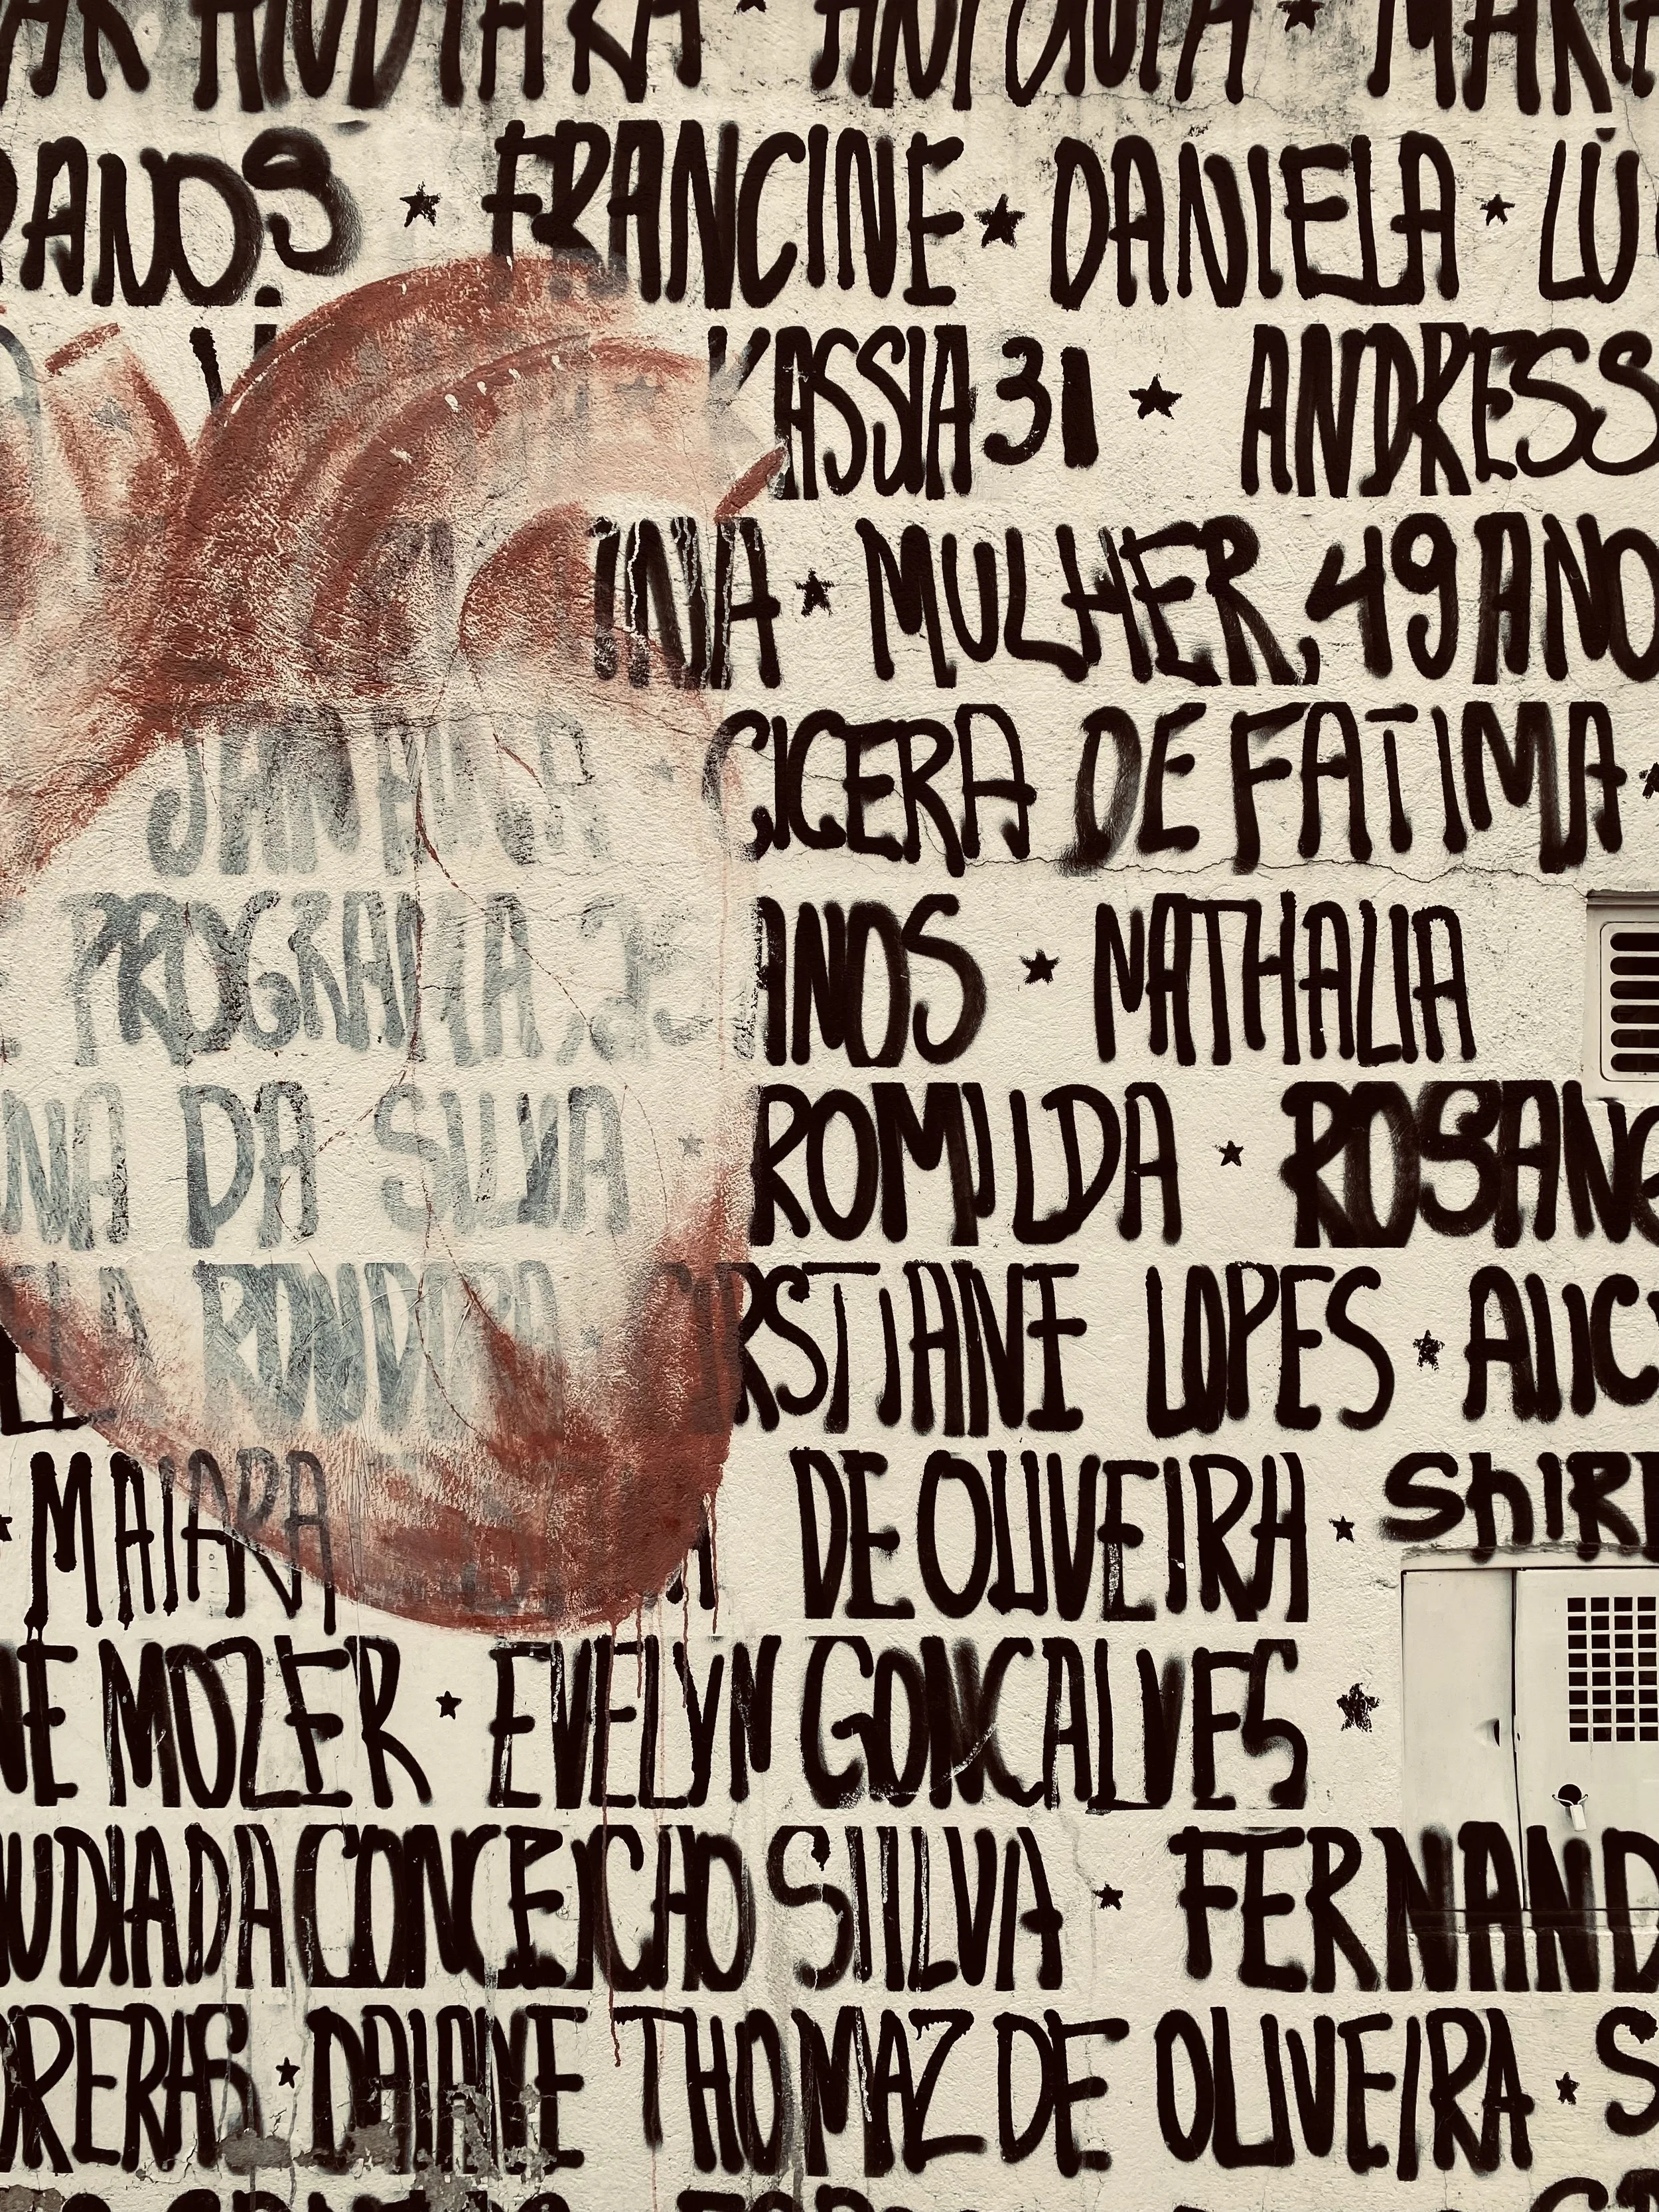 ANTONIA ★
ANOS. ★ FRANCINE ★ DANIELA ★
KASSIA 31 ★ ANDRESS
INA ★ MULHER, 49 ANO
JANAINA ★ CICERA DE FATIMA ★
PROGRAMA, ANOS ★ NATHALIA
NA DA SILVA ★ ROMILDA ★ ROSANG
CRSTIANE LOPES ★ ALIC
★ MAIARA DE OLIVEIRA ★ SHIR
NE MOZER ★ EVELYN GONCALVES ★
UDIA DA CONCEICHO SILLVA ★ FERNAND
RRERAS ★ DAIANE THOMAZ DE OLIVEIRA ★ S